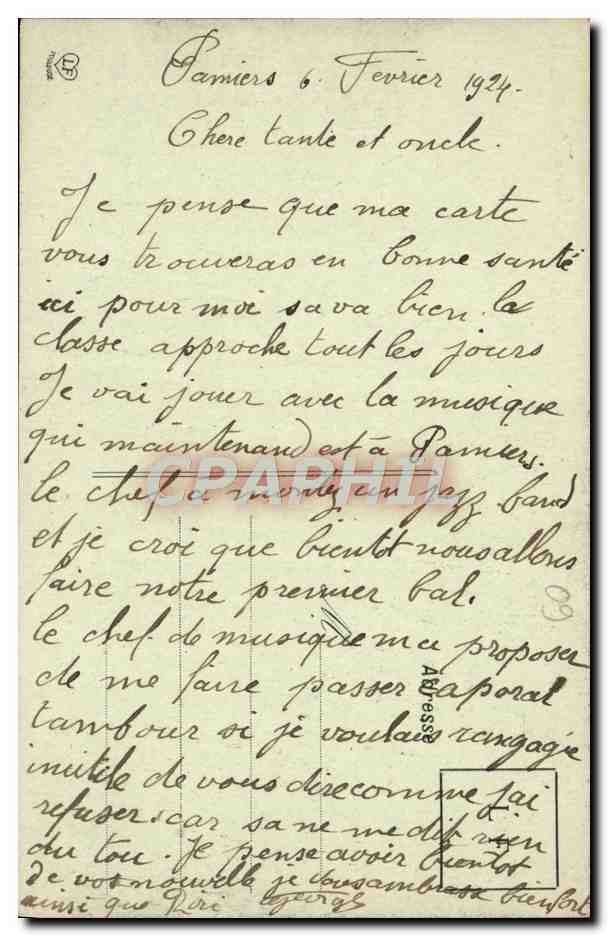 Pamiers 6. Fevrier 1924.
Chere tante et oncle.
Je pense que ma carte
vous trouveras en bonne santé
ici pour moi sa va bien. la
classe approche tout les jours
Je vai jouer avec la musique
qui maintenand est à Pamiers.
le chef a montez un jazz band
et je croi que bientot nous allons
faire notre premier bal.
le chef de musique ma proposer
de me faire passer caporal
tambour si je voulais rangagée
inutile de vous dire comme j'ai
refuser car sa ne me dit rien
du tou. Je pense avoir bientot
de vos nouvelle je vous ambrasse bien fort
ainsi que
Georges
Adresse
09
CPAPHIL